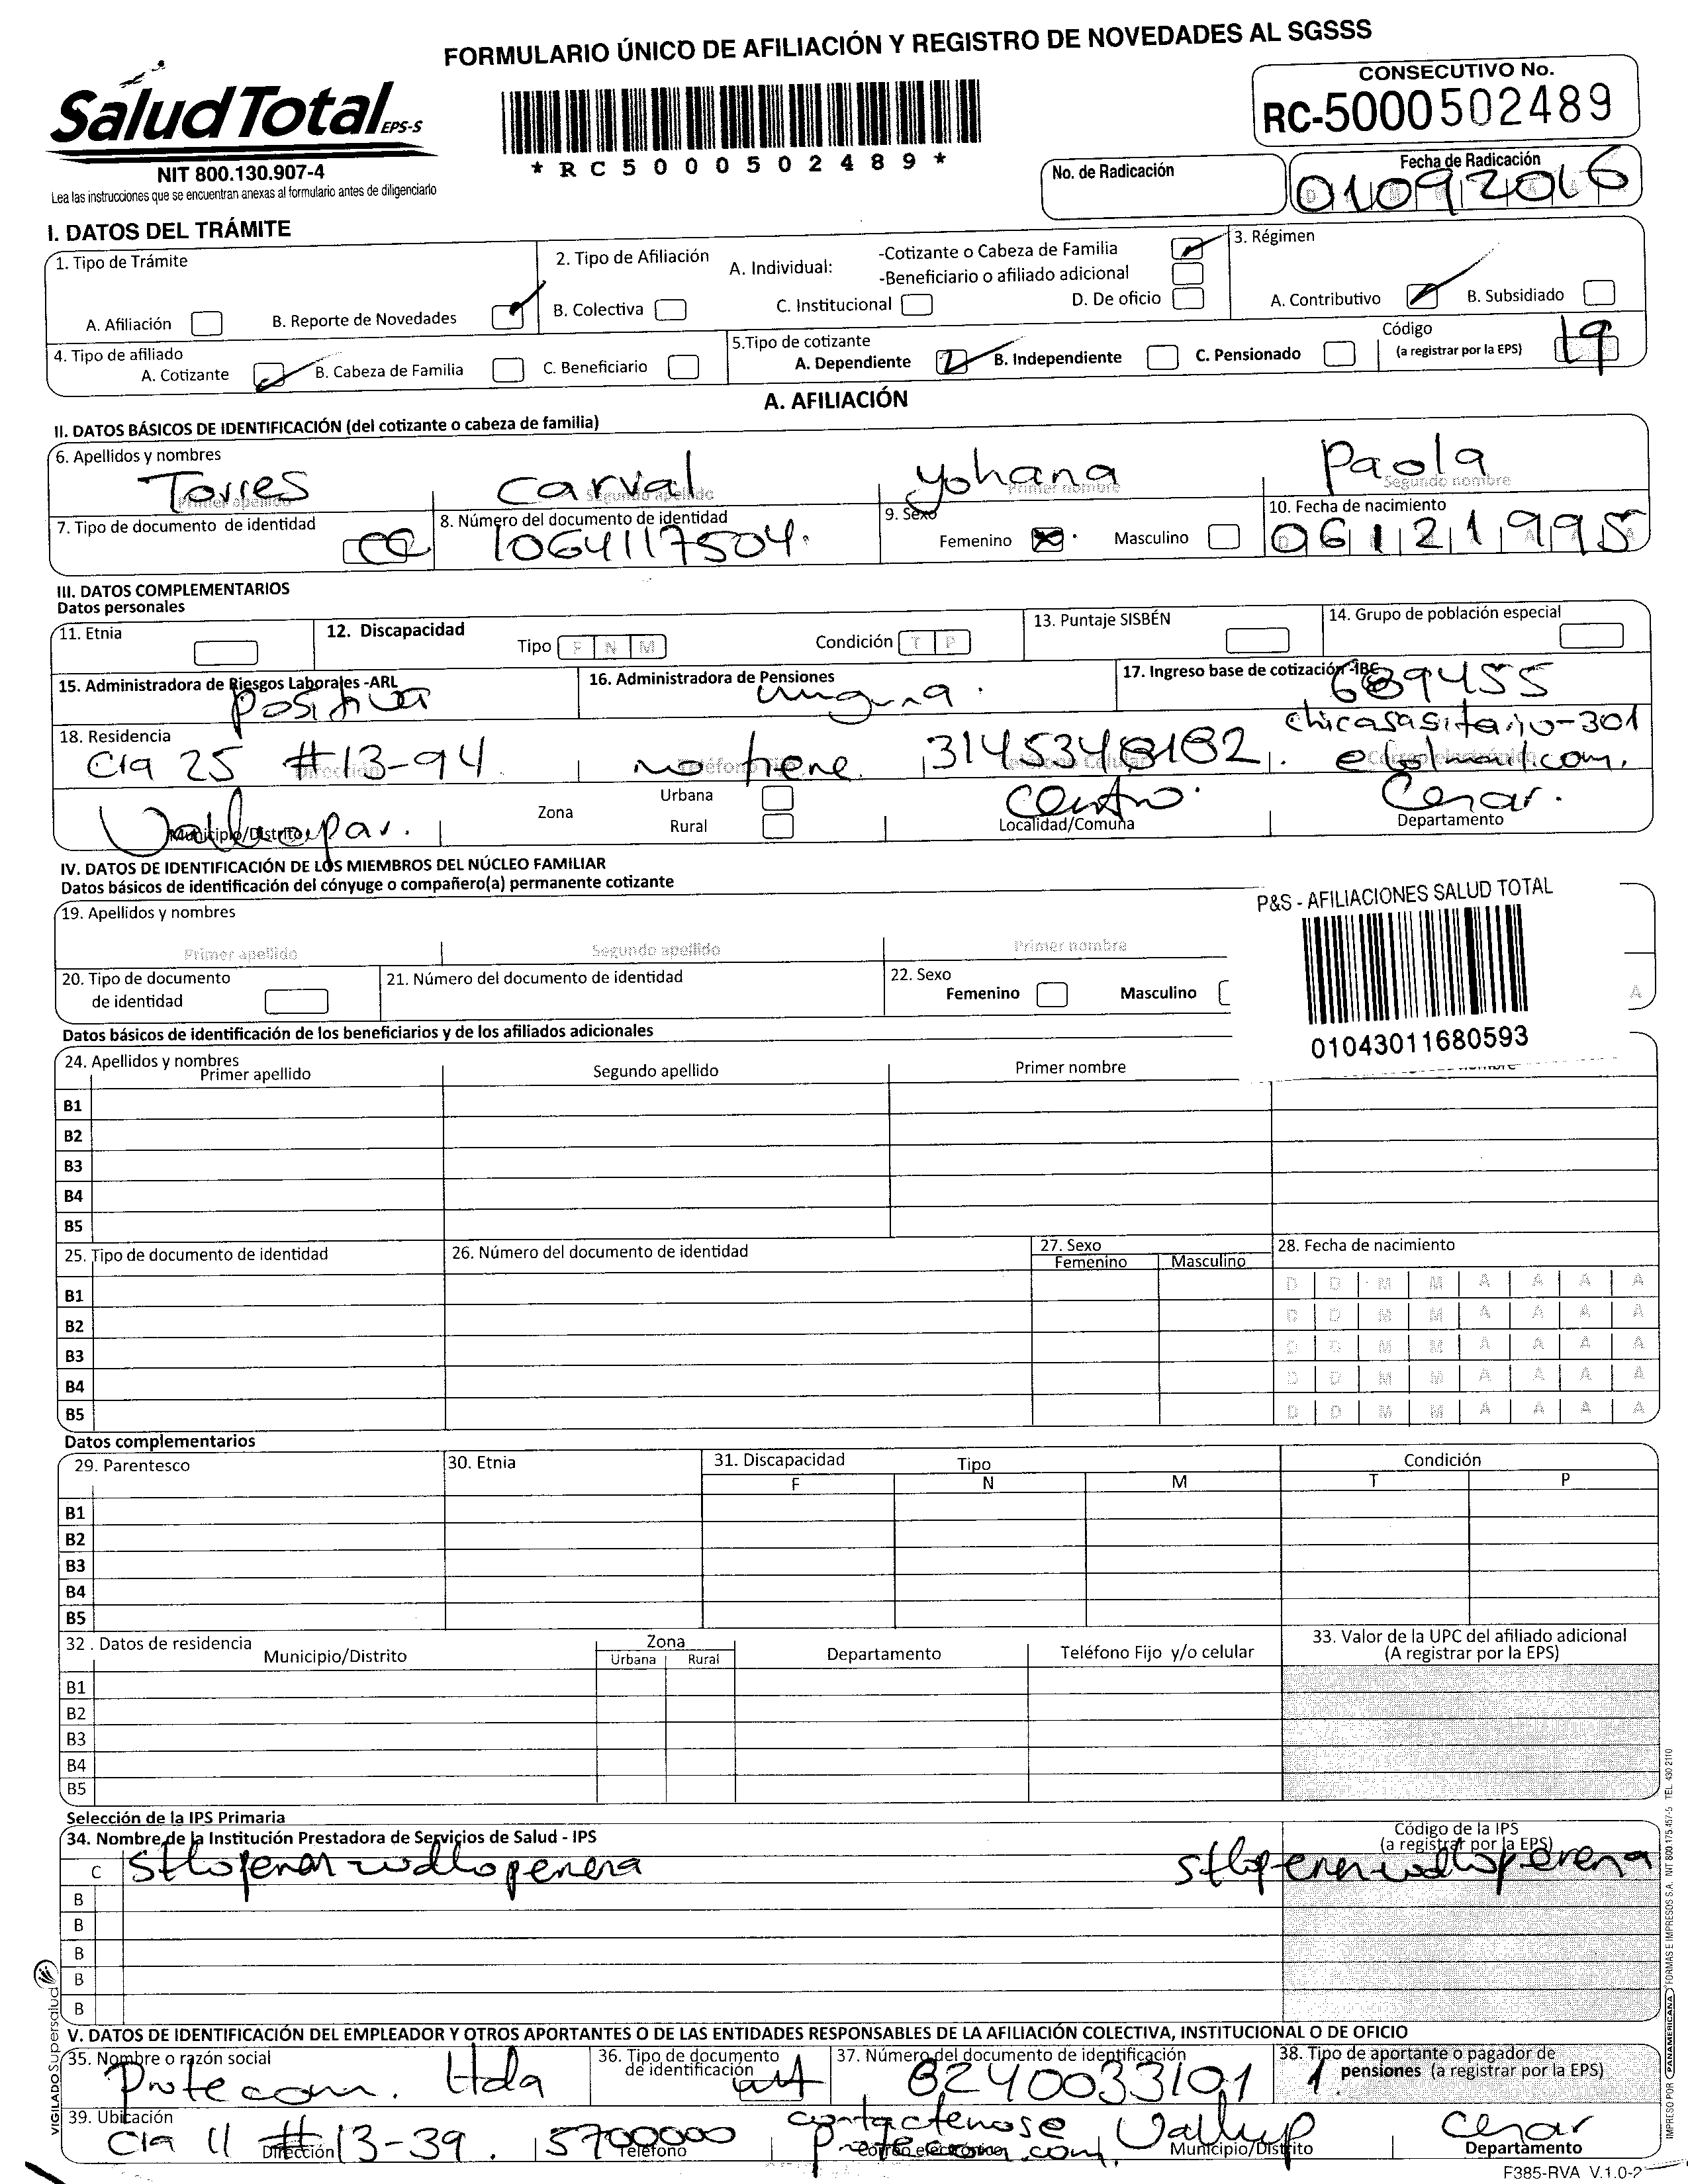 FORMULARIO ÚNICO DE AFILIACIÓN Y REGISTRO DE NOVEDADES AL SGSSS
SaludTotal EPS-S
NIT 800.130.907-4
Lea las instrucciones que se encuentran anexas al formulario antes de diligenciarlo
*RC5000502489*
CONSECUTIVO No.
RC-5000502489
No. de Radicación
Fecha de Radicación
01092016
I. DATOS DEL TRÁMITE
1. Tipo de Trámite
A. Afiliación B. Reporte de Novedades
2. Tipo de Afiliación A. Individual: -Cotizante o Cabeza de Familia
-Beneficiario o afiliado adicional
B. Colectiva C. Institucional D. De oficio
3. Régimen
A. Contributivo B. Subsidiado
4. Tipo de afiliado
A. Cotizante B. Cabeza de Familia C. Beneficiario
5.Tipo de cotizante
A. Dependiente B. Independiente C. Pensionado
Código
(a registrar por la EPS) 19
A. AFILIACIÓN
II. DATOS BÁSICOS DE IDENTIFICACIÓN (del cotizante o cabeza de familia)
6. Apellidos y nombres
Torres carval yohana Paola
Primer apellido Segundo apellido Primer nombre Segundo nombre
7. Tipo de documento de identidad CC
8. Número del documento de identidad
1064117504.
9. Sexo
Femenino Masculino
10. Fecha de nacimiento
06121995
III. DATOS COMPLEMENTARIOS
Datos personales
11. Etnia
12. Discapacidad Tipo F N M Condición T P
13. Puntaje SISBÉN
14. Grupo de población especial
15. Administradora de Riesgos Laborales -ARL
positiva
16. Administradora de Pensiones
17. Ingreso base de cotización -IBC
689455
18. Residencia
Cra 25 #13-94 no tiene 3145348182.
Dirección Teléfono Fijo Teléfono Celular Correo electrónico
Valledupar. Zona Urbana
Rural
centro. Cesar.
Municipio/Distrito Localidad/Comuna Departamento
IV. DATOS DE IDENTIFICACIÓN DE LOS MIEMBROS DEL NÚCLEO FAMILIAR
Datos básicos de identificación del cónyuge o compañero(a) permanente cotizante
19. Apellidos y nombres
Primer apellido Segundo apellido Primer nombre
20. Tipo de documento
de identidad
21. Número del documento de identidad
22. Sexo
Femenino Masculino
A
P&S - AFILIACIONES SALUD TOTAL
01043011680593
Datos básicos de identificación de los beneficiarios y de los afiliados adicionales
24. Apellidos y nombres
Primer apellido Segundo apellido Primer nombre
B1
B2
B3
B4
B5
25. Tipo de documento de identidad 26. Número del documento de identidad 27. Sexo 28. Fecha de nacimiento
Femenino Masculino
B1 D D M M A A A A
B2 D D M M A A A A
B3 D D M M A A A A
B4 D D M M A A A A
B5 D D M M A A A A
Datos complementarios
29. Parentesco 30. Etnia 31. Discapacidad Tipo Condición
F N M T P
B1
B2
B3
B4
B5
32 . Datos de residencia
Municipio/Distrito Zona Departamento Teléfono Fijo y/o celular
Urbana Rural
33. Valor de la UPC del afiliado adicional
(A registrar por la EPS)
B1
B2
B3
B4
B5
Selección de la IPS Primaria
34. Nombre de la Institución Prestadora de Servicios de Salud - IPS
Código de la IPS
(a registrar por la EPS)
C
B
B
B
B
B
V. DATOS DE IDENTIFICACIÓN DEL EMPLEADOR Y OTROS APORTANTES O DE LAS ENTIDADES RESPONSABLES DE LA AFILIACIÓN COLECTIVA, INSTITUCIONAL O DE OFICIO
35. Nombre o razón social
Protecom. Ltda
36. Tipo de documento
de identificación
37. Número del documento de identificación
8240033101
38. Tipo de aportante o pagador de
pensiones (a registrar por la EPS)
1.
39. Ubicación
Cra 11 #13-39. 5700000 contactenose Vallup Cesar
protecom.com
Dirección Teléfono Correo electrónico Municipio/Distrito Departamento
F385-RVA V.1.0-2
VIGILADO Supersalud
IMPRESO POR PANAMERICANA FORMAS E IMPRESOS S.A. NIT 800.175.457-5 TEL. 430 2110